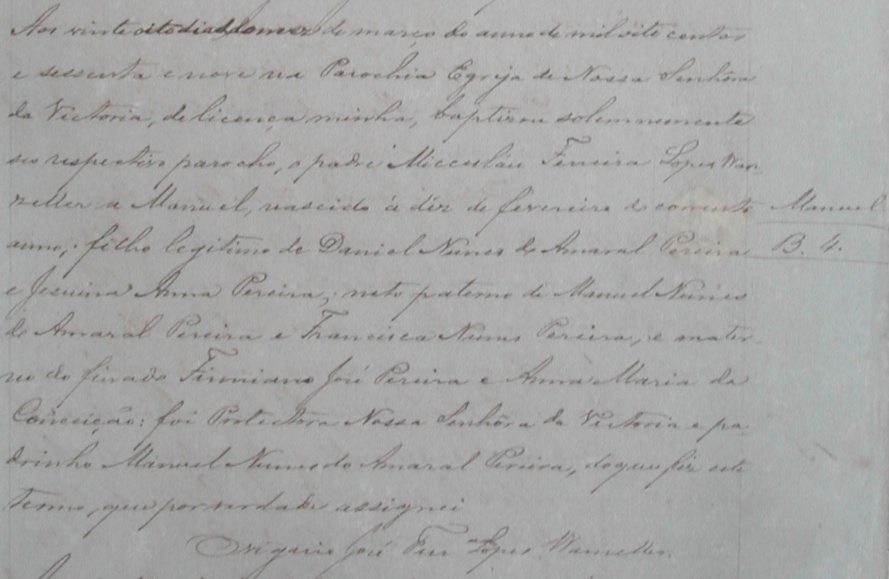 Aos vinte oito dias do mez de março do anno de mil oito centos
e sessenta e nove na Parochia Egreja de Nossa Senhôra
da Victoria, de licença minha, baptizou solemnemente
seo respectivo parocho, o padre Micesláu Ferreira Lopes Wan-
zeller a Manuel, nascido á déz de fevereiro do corrente
anno, filho legitimo de Daniel Nunes do Amaral Pereira
e Jesuina Anna Pereira; neto paterno de Manuel Nunes
do Amaral Pereira e Francisca Nunes Pereira, e mater-
no do finado Firmiano José Pereira e Anna Maria da
Conceição: foi Protectora Nossa Senhôra da Victoria e pa-
drinho Manuel Nunes do Amaral Pereira, do que fiz este
termo, que por verdade assignei
O vigario José Ferr.ª Lopes Wanzeller.
Manuel
B. 4.